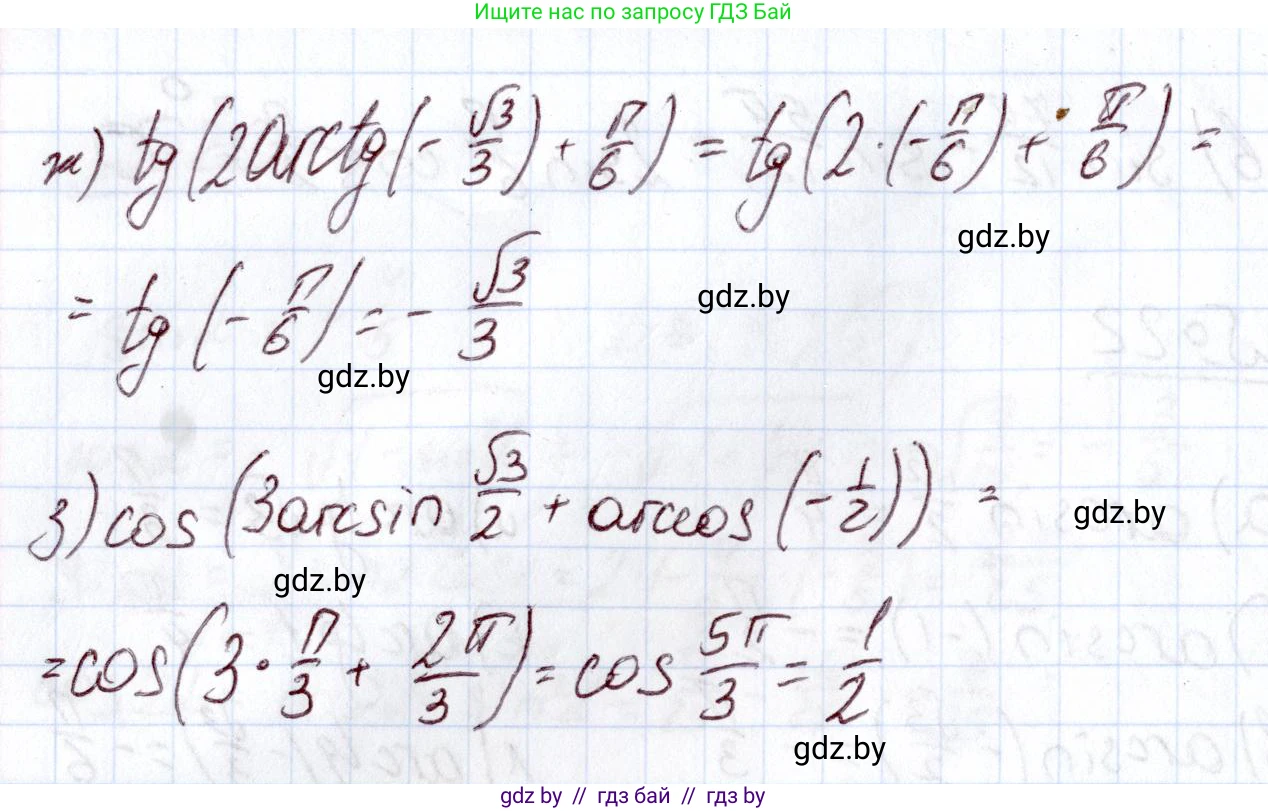 Ищите нас по запросу ГДЗ Бай
ж) tg(2arctg(-√3/3) + π/6) = tg(2·(-π/6) + π/6) =
gdz.by
= tg(-π/6) = -√3/3
gdz.by
gdz.by
з) cos(3arcsin √3/2 + arccos(-1/2)) =
gdz.by
gdz.by
=cos(3·π/3 + 2π/3) = cos 5π/3 = 1/2
gdz.by
gdz.by // гдз бай // гдз by